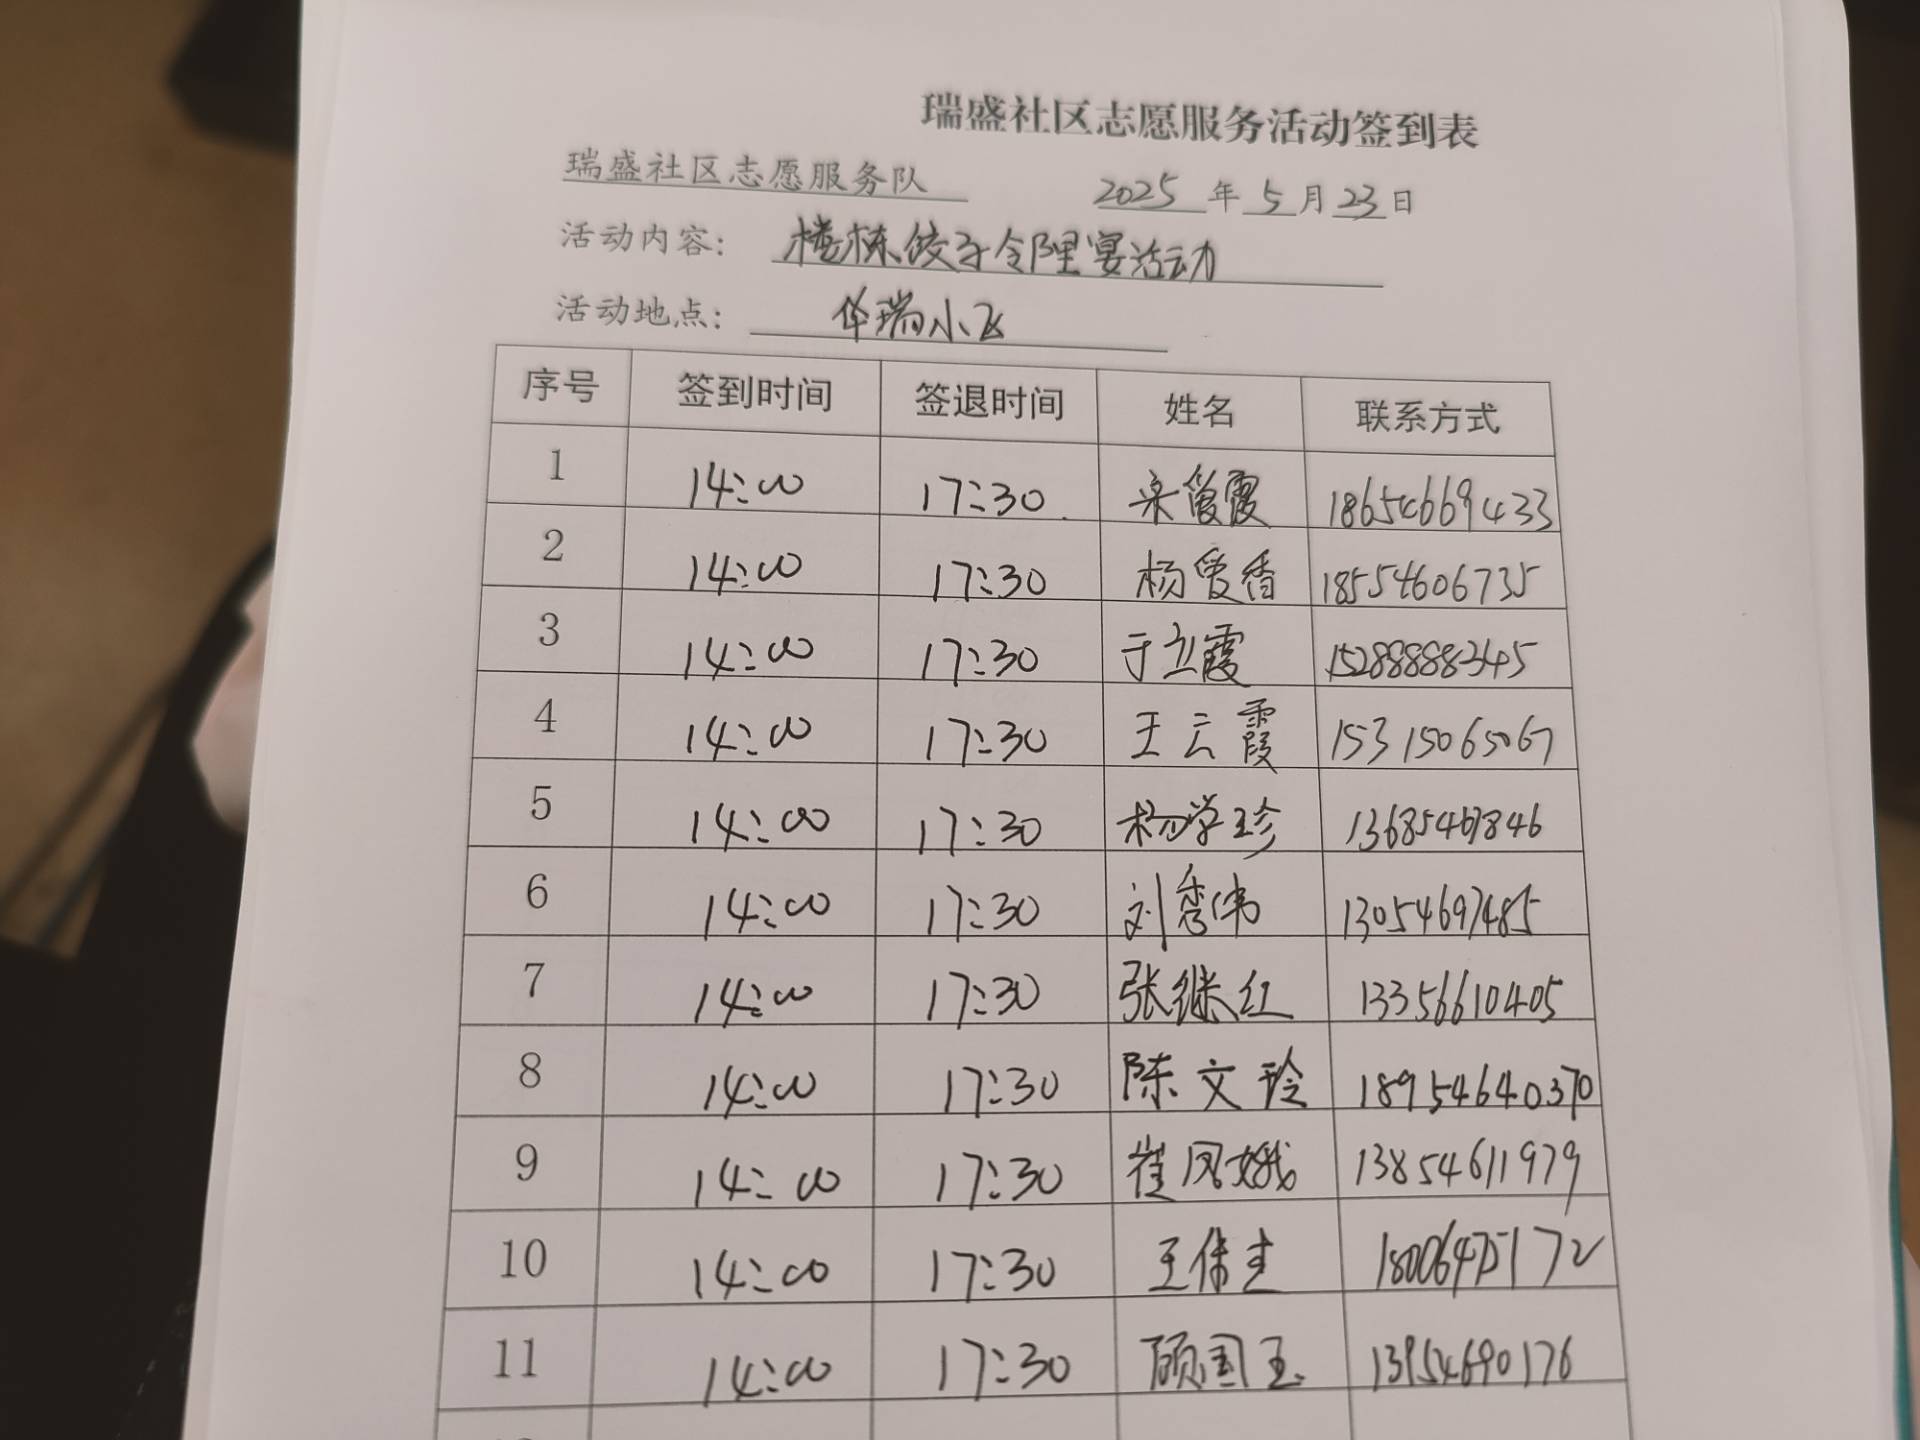 瑞盛社区志愿服务活动签到表
瑞盛社区志愿服务队 2025年5月23日
活动内容: 楼栋饺子令阳里宴活动
活动地点: 华瑞小区
序号 签到时间 签退时间 姓名 联系方式
1 14:00 17:30 霞 18654669433
2 14:00 17:30 杨爱香 18554606735
3 14:00 17:30 于立霞 15288888345
4 14:00 17:30 王云霞 15315065067
5 14:00 17:30 杨学珍
6 14:00 17:30 刘秀伟 13054697485
7 14:00 17:30 张继红 13356610405
8 14:00 17:30 陈文玲 18954640370
9 14:00 17:30 崔凤娥 13854611979
10 14:00 17:30 王保吉 18006475172
11 14:00 17:30 顾国玉 13954690176